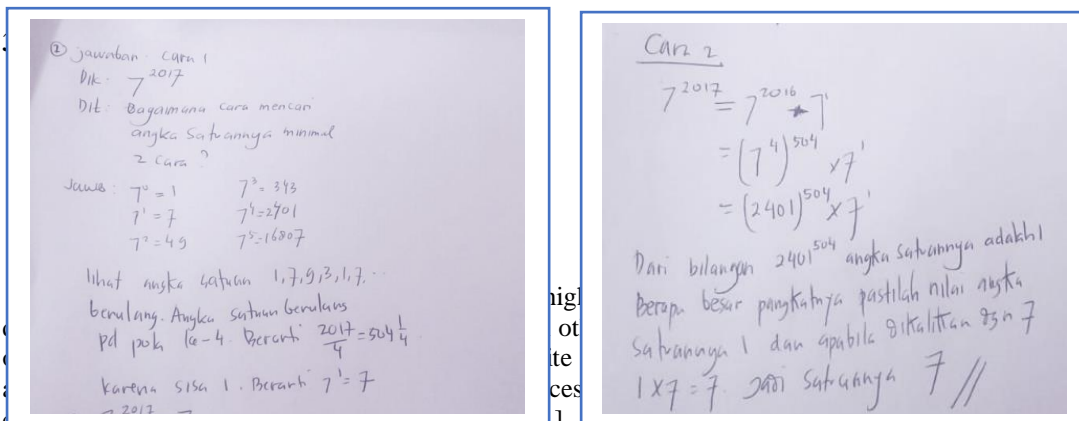 ② Jawaban cara 1
Dik: 7^2017
Dit: Bagaimana cara mencari
angka satuannya minimal
2 cara ?
Jawab : 7^0 = 1 7^3 = 343
7^1 = 7 7^4 = 2401
7^2 = 49 7^5 = 16807
lihat angka satuan 1,7,9,3,1,7...
berulang. Angka satuan berulang
pd pola ke-4. Berarti 2017/4 = 504 1/4
karena sisa 1. Berarti 7^1 = 7
Cara 2
7^2017 = 7^2016 * 7^1
= (7^4)^504 x 7^1
= (2401)^504 x 7^1
Dari bilangan 2401^504 angka satuannya adalah 1
Berapa besar pangkatnya pastilah nilai angka
satuannya 1 dan apabila dikalikan dgn 7
1 x 7 = 7. Jadi satuannya 7 //